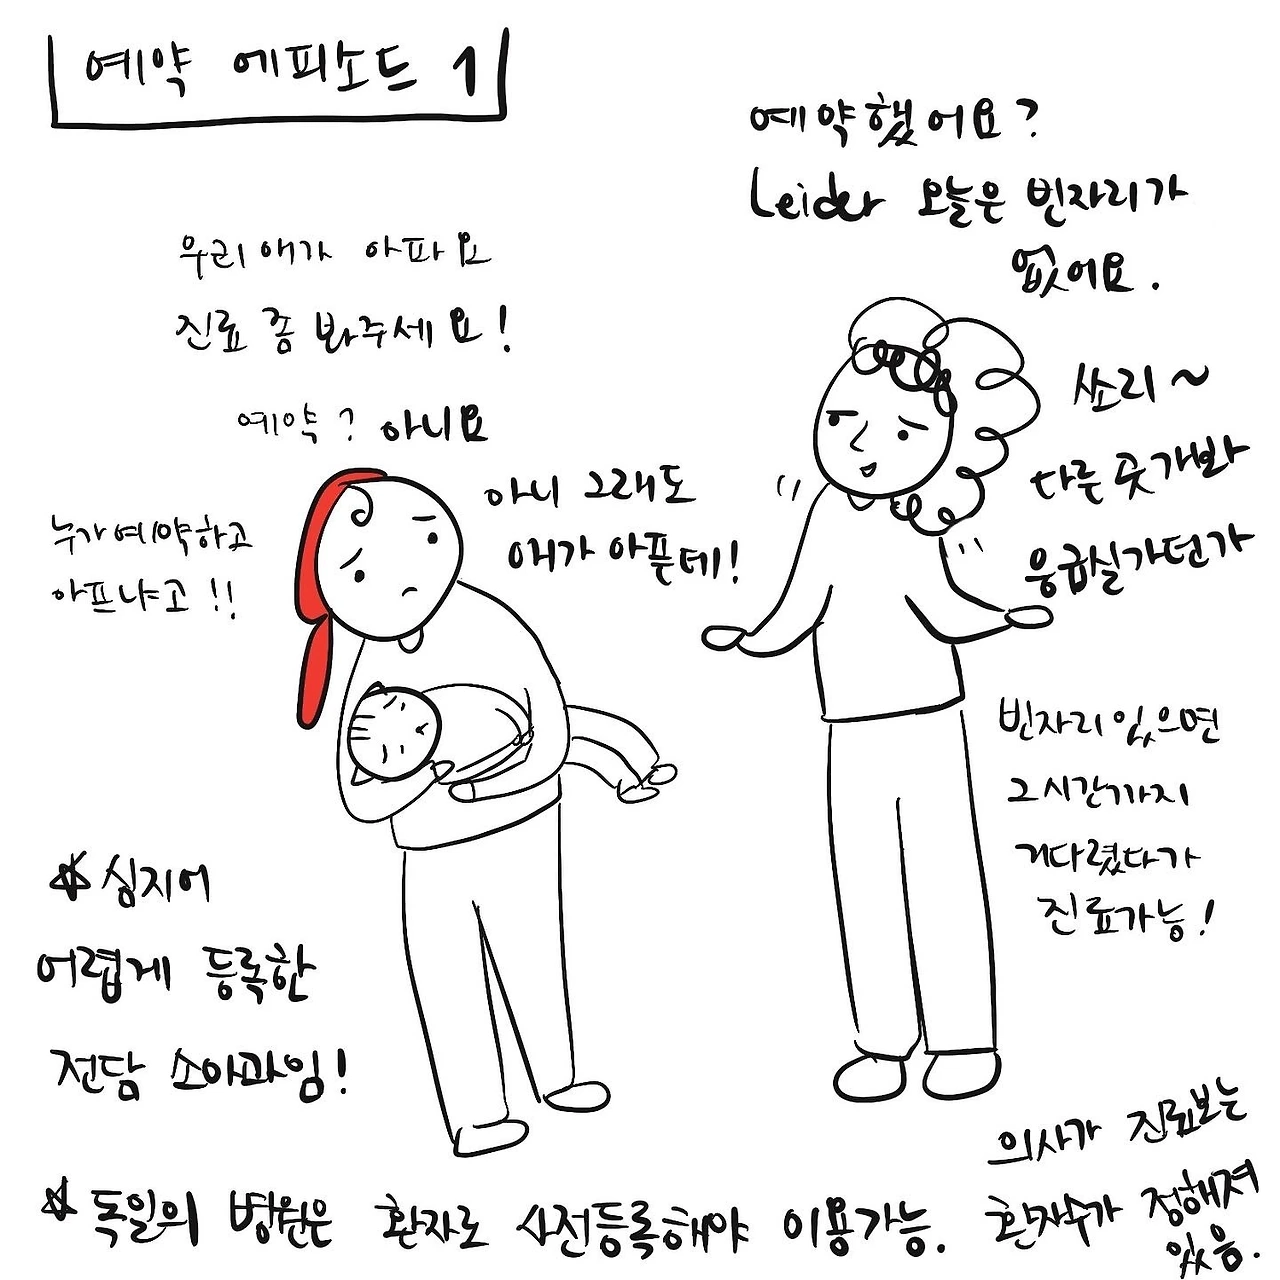 예약 에피소드 1
예약했어요?
Leider 오늘은 빈자리가
없어요.
우리 애가 아파요
진료 좀 봐주세요!
예약? 아니요
쏘리~
다른 곳 가봐
응급실가던가
아니 그래도
애가 아픈데!
누가 예약하고
아프냐고!!
빈자리 있으면
2시간까지
기다렸다가
진료가능!
☆ 심지어
어렵게 등록한
전담 소아과임!
☆ 독일의 병원은 환자로 사전등록해야 이용가능.
의사가 진료보는
환자수가 정해져
있음.